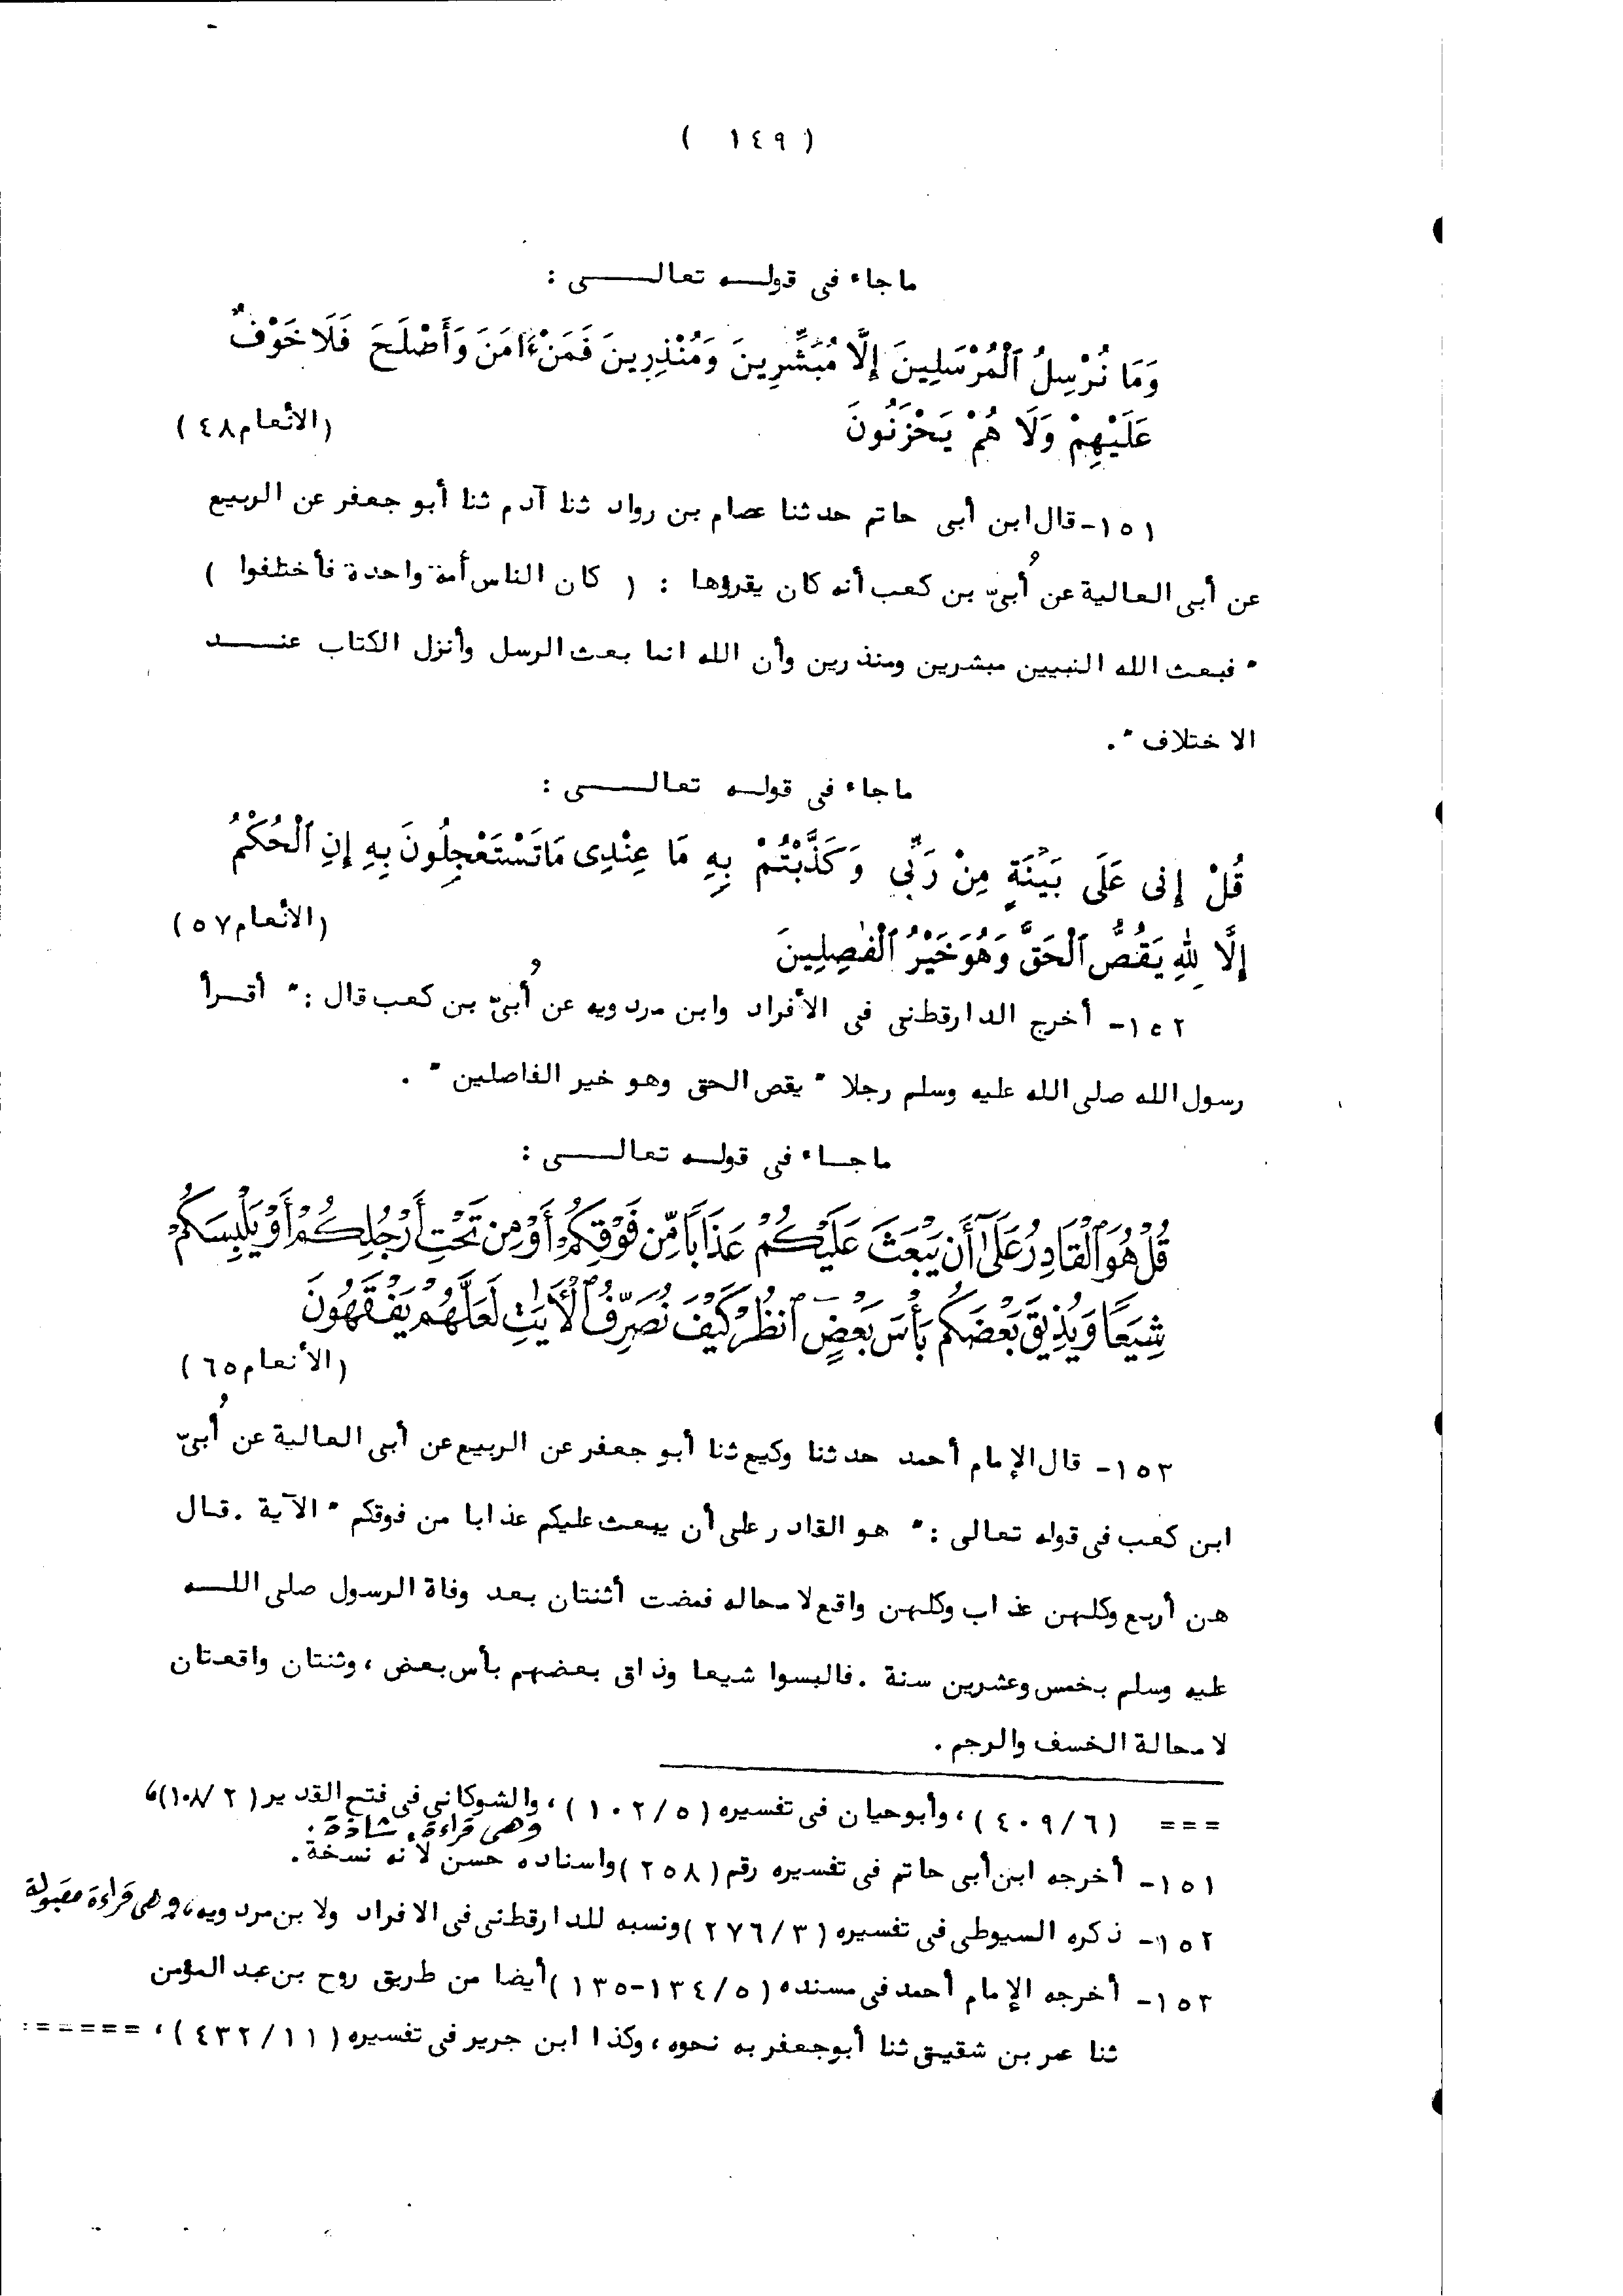 ( ١٤٩ )
ما جاء فى قولــه تعالـــــى :
وَمَا نُرْسِلُ ٱلْمُرْسَلِينَ إِلَّا مُبَشِّرِينَ وَمُنْذِرِينَ فَمَنْ ءَامَنَ وَأَصْلَحَ فَلَا خَوْفٌ
عَلَيْهِمْ وَلَا هُمْ يَحْزَنُونَ
(الأنعام ٤٨ )
١٥١- قال ابن أبى حاتم حدثنا عصام بن رواد ثنا آدم ثنا أبو جعفر عن الربيع
عن أبى العالية عن أُبىّ بن كعب أنه كان يقرؤها : ( كان الناس أمة واحدة فأختلفوا )
" فبعث الله النبيين مبشرين ومنذرين وأن الله انما بعث الرسل وأنزل الكتاب عنــــد
الاختلاف " .
ما جاء فى قولــه تعالـــــى :
قُلْ إِنى عَلَى بَيِّنَةٍ مِنْ رَبِّى وَكَذَّبْتُمْ بِهِ مَا عِنْدِى مَا تَسْتَعْجِلُونَ بِهِ إِنِ ٱلْحُكْمُ
إِلَّا لِلّهِ يَقُصُّ ٱلْحَقَّ وَهُوَ خَيْرُ ٱلْفٰصِلِينَ
(الأنعام ٥٧ )
١٥٢- أخرج الدارقطنى فى الأفراد وابن مردويه عن أُبىّ بن كعب قال : " أقــرأ
رسول الله صلى الله عليه وسلم رجلا " يقص الحق وهو خير الفاصلين " .
ما جــاء فى قولــه تعالـــــى :
قُلْ هُوَ ٱلْقَادِرُ عَلَىٰٓ أَن يَبْعَثَ عَلَيْكُمْ عَذَابًا مِّن فَوْقِكُمْ أَوْ مِن تَحْتِ أَرْجُلِكُمْ أَوْ يَلْبِسَكُمْ
شِيَعًا وَيُذِيقَ بَعْضَكُم بَأْسَ بَعْضٍ ٱنظُرْ كَيْفَ نُصَرِّفُ ٱلْأَيَٰتِ لَعَلَّهُمْ يَفْقَهُونَ
(الأنعام ٦٥ )
١٥٣- قال الإمام أحمد حدثنا وكيع ثنا أبو جعفر عن الربيع عن أبى العالية عن أُبىّ
ابن كعب فى قوله تعالى : " هو القادر على أن يبعث عليكم عذابا من فوقكم " الآية . قـال
هن أربع وكلهن عذاب وكلهن واقع لا محاله فمضت أثنتان بعد وفاة الرسول صلى اللــه
عليه وسلم بخمس وعشرين سنة . فالبسوا شيعا وذاق بعضهم بأس بعض ، وثنتان واقعتان
لا محالة الخسف والرجم .
=== (٤٠٩/٦ ) ، وأبوحيان فى تفسيره (١٠٢/٥ ) ، والشوكانى فى فتح القدير (١٠٨/٢ ) ،
وهى قراءة شاذة .
١٥١- أخرجه ابن أبى حاتم فى تفسيره رقم (٢٥٨ ) واسناده حسن لانه نسخة .
١٥٢- ذكره السيوطى فى تفسيره (٢٧٦/٣ ) ونسبه للدارقطنى فى الافراد ولابن مردويه ، وهى قراءة مقبولة
١٥٣- أخرجه الإمام أحمد فى مسنده (١٣٤/٥-١٣٥ ) أيضا من طريق روح بن عبد المؤمن
ثنا عمر بن شقيق ثنا أبو جعفر به نحوه ، وكذا ابن جرير فى تفسيره (٤٣٢/١١ ) ، ======